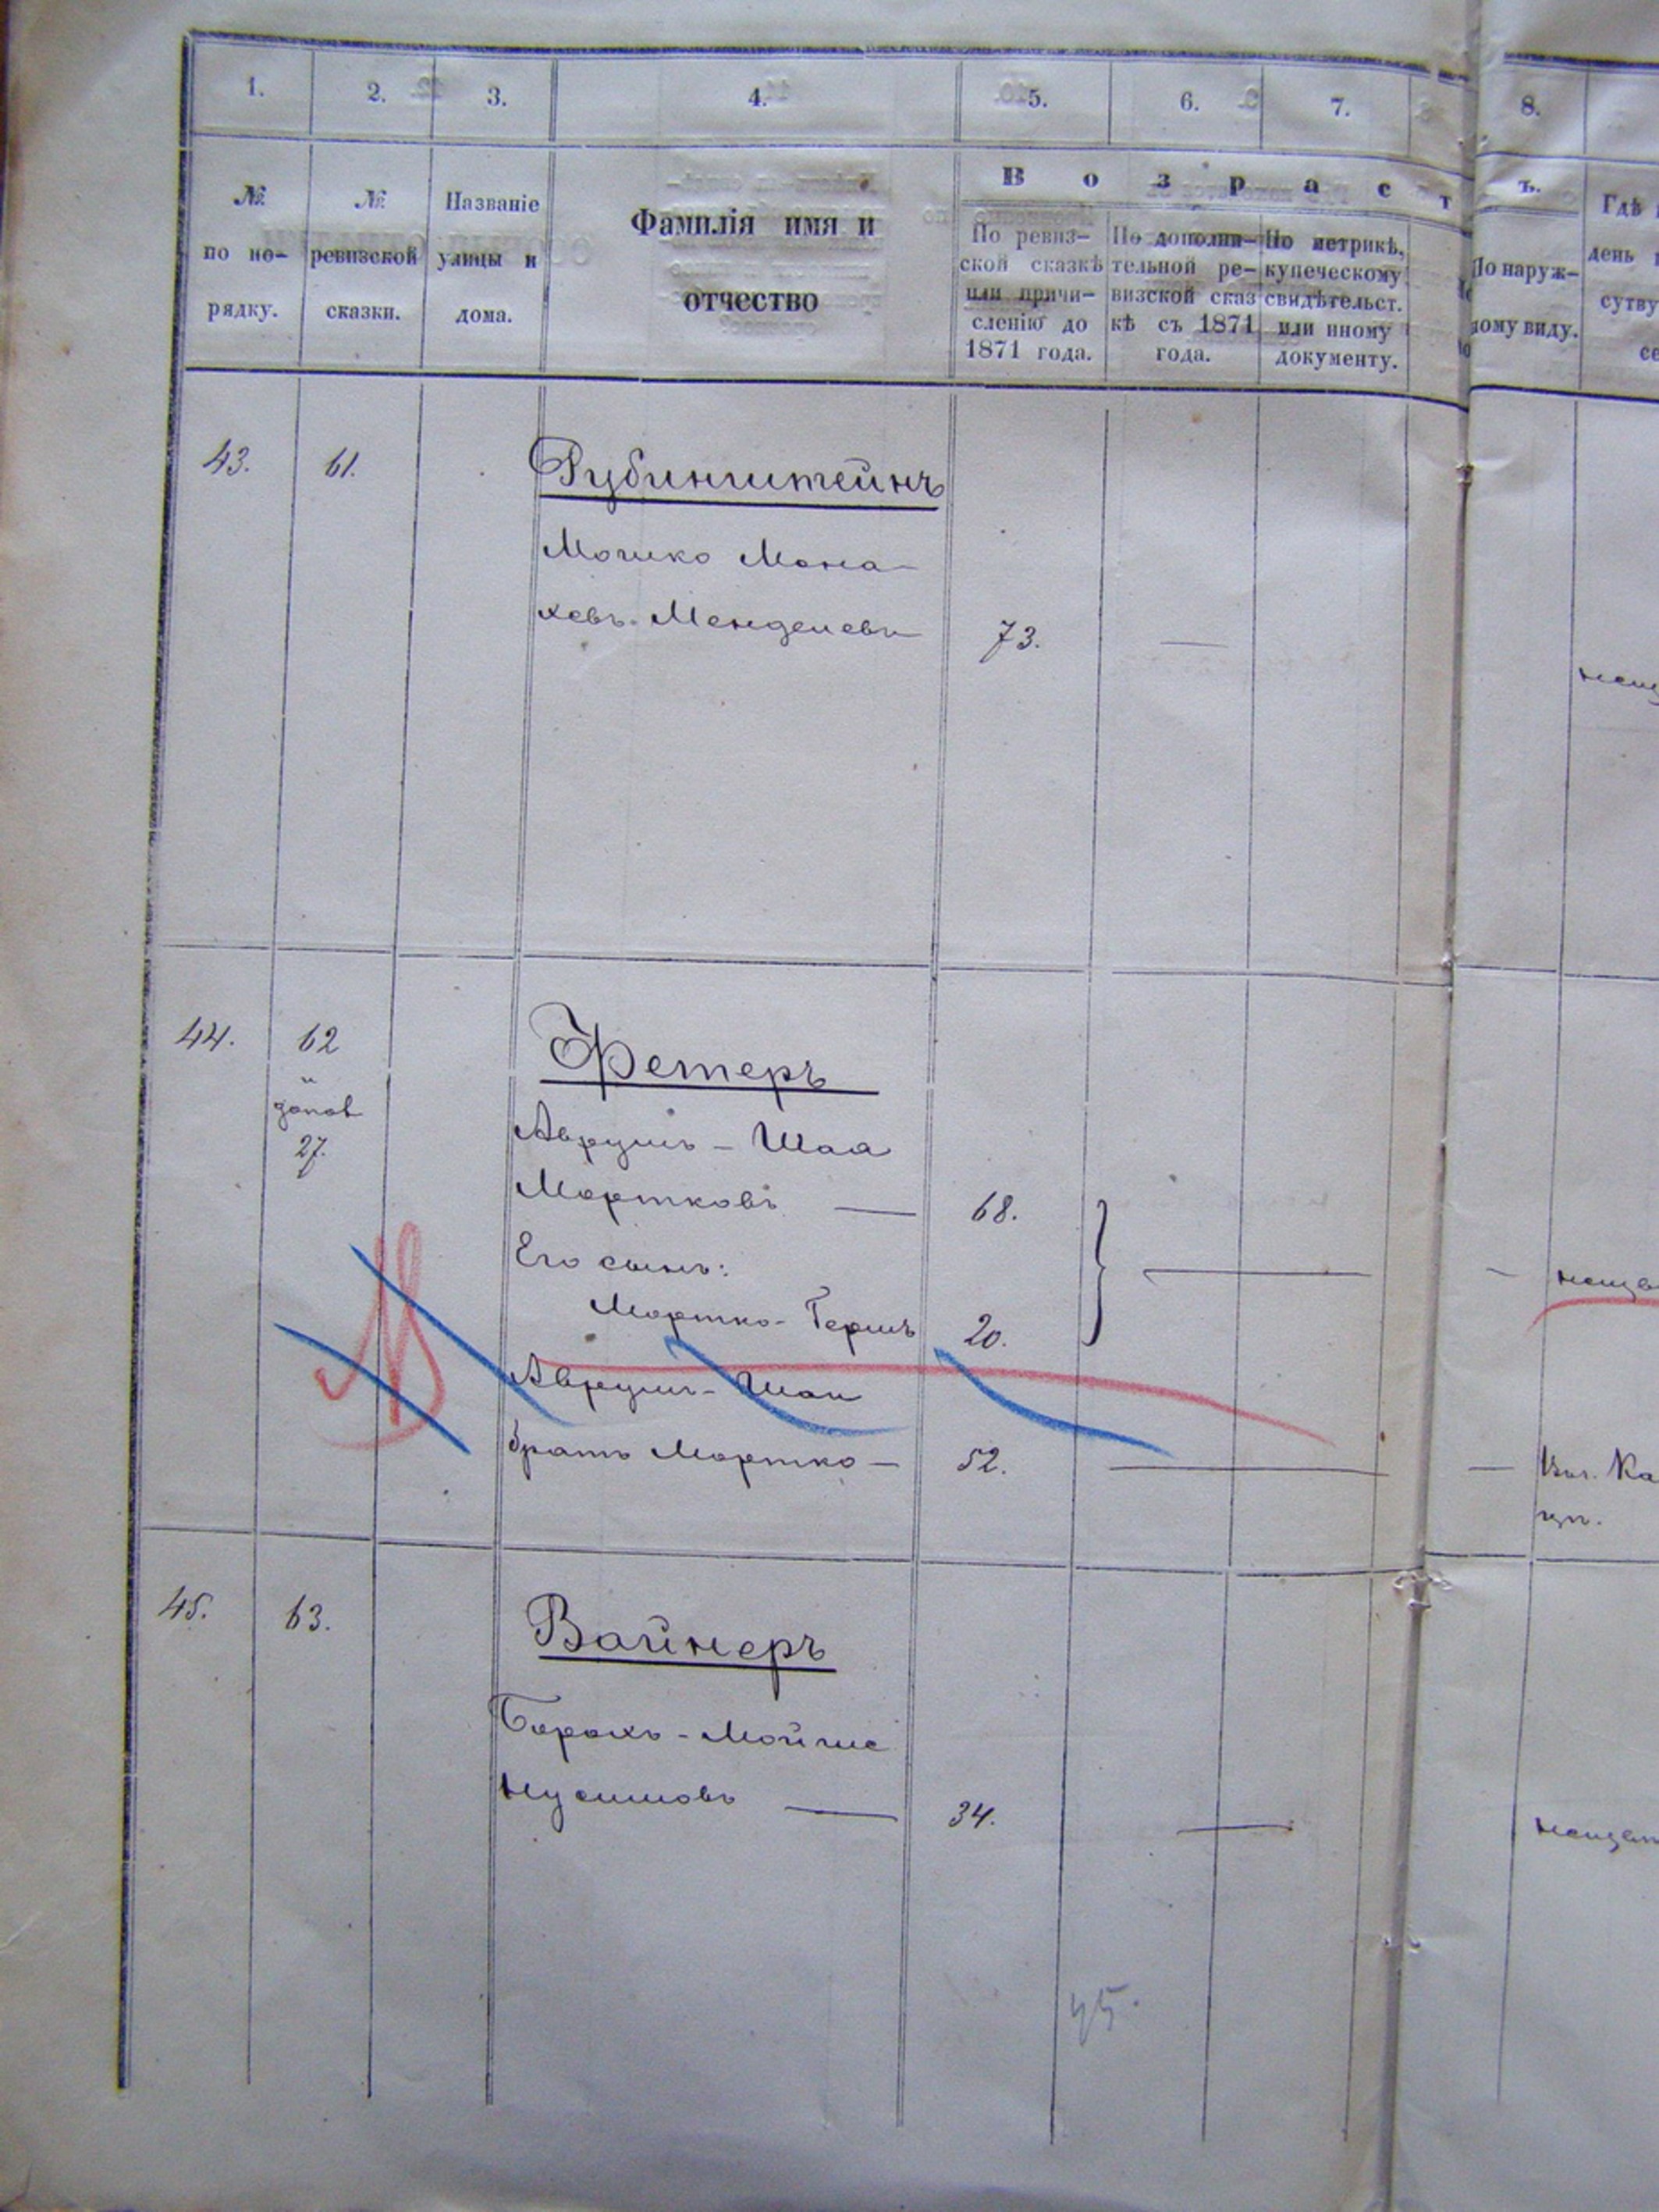 1. 2. 3. 4. 5. 6. 7. 8.
№ по по-рядку.
№ ревизской сказки.
Названіе улицы и дома.
Фамилія имя и
отчество
Возраст ъ.
По ревиз-
ской сказкѣ
или причи-
сленію до
1871 года.
По дополни-
тельной ре-
визской сказ
кѣ съ 1871
года.
По метрикѣ,
купеческому
свидѣтельст.
или иному
документу.
По наруж-
ному виду.
Гдѣ
день
сутву
се
43. 61. Рубинштейнъ
Мошко Мона-
ховъ-Менделевъ 73. —
44. 62 Фетеръ
и
допол
27.
Аврумъ - Шая
Мортковъ — 68.
Его сынъ:
Мортко-Гершъ 20. —
Аврумъ-Шаи
братъ Мортко — 52. —
45. 63. Вайнеръ
Борохъ-Мойше
Нусимовъ — 34. —
45.